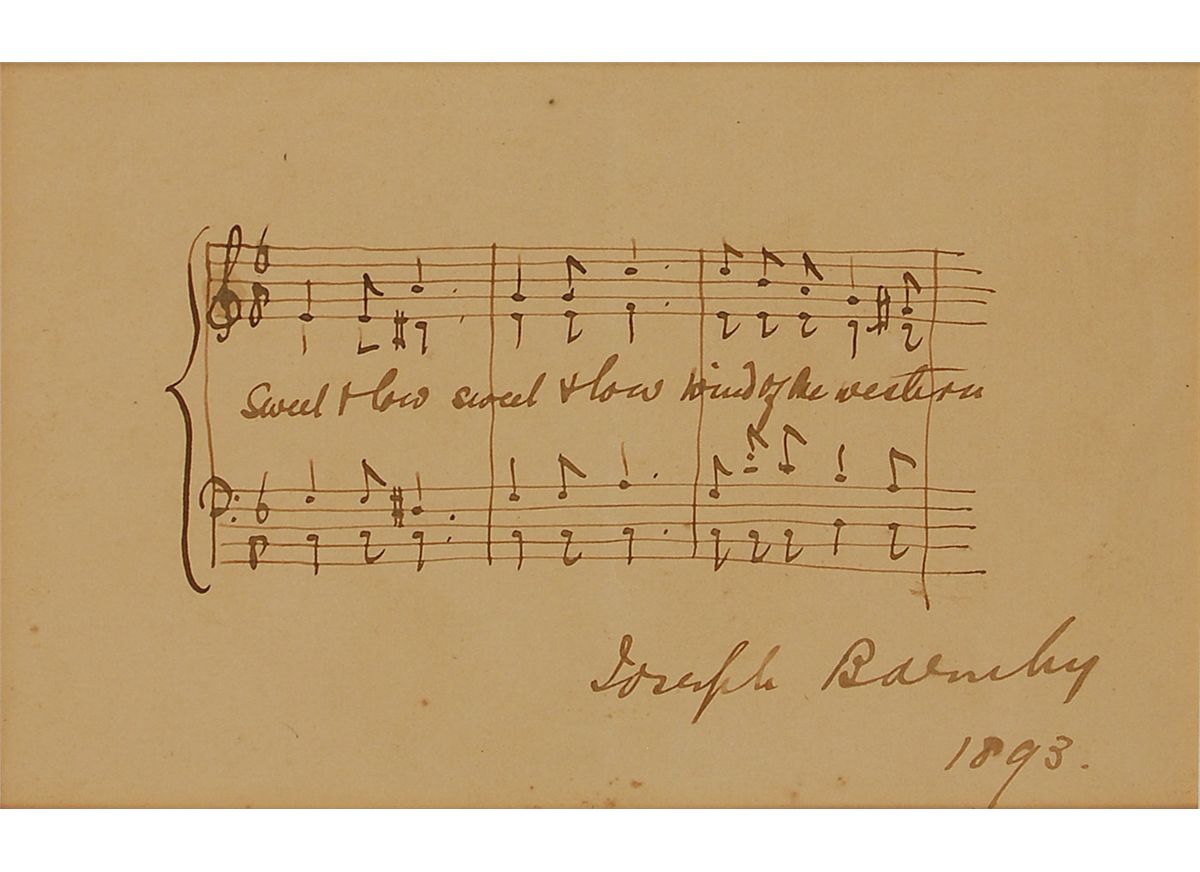 Sweet & low sweet & low wind of the western
Joseph Barnby
1893.